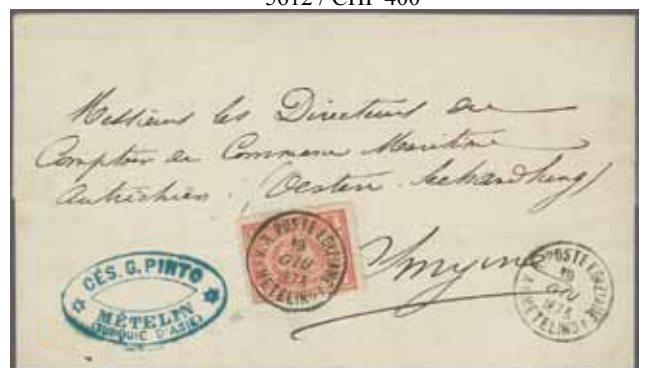 5012 / CHF 400
Messieurs les Directeurs du
Comptoir de Commerce Maritime
Autrichien
Smyrne
V.R. POSTE EGIZIANE
19
GIU
1873
METELINO
V.R. POSTE EGIZIANE
19
GIU
1873
METELINO
CÉS. G. PINTO
MÉTELIN
(TURQUIE D'ASIE)